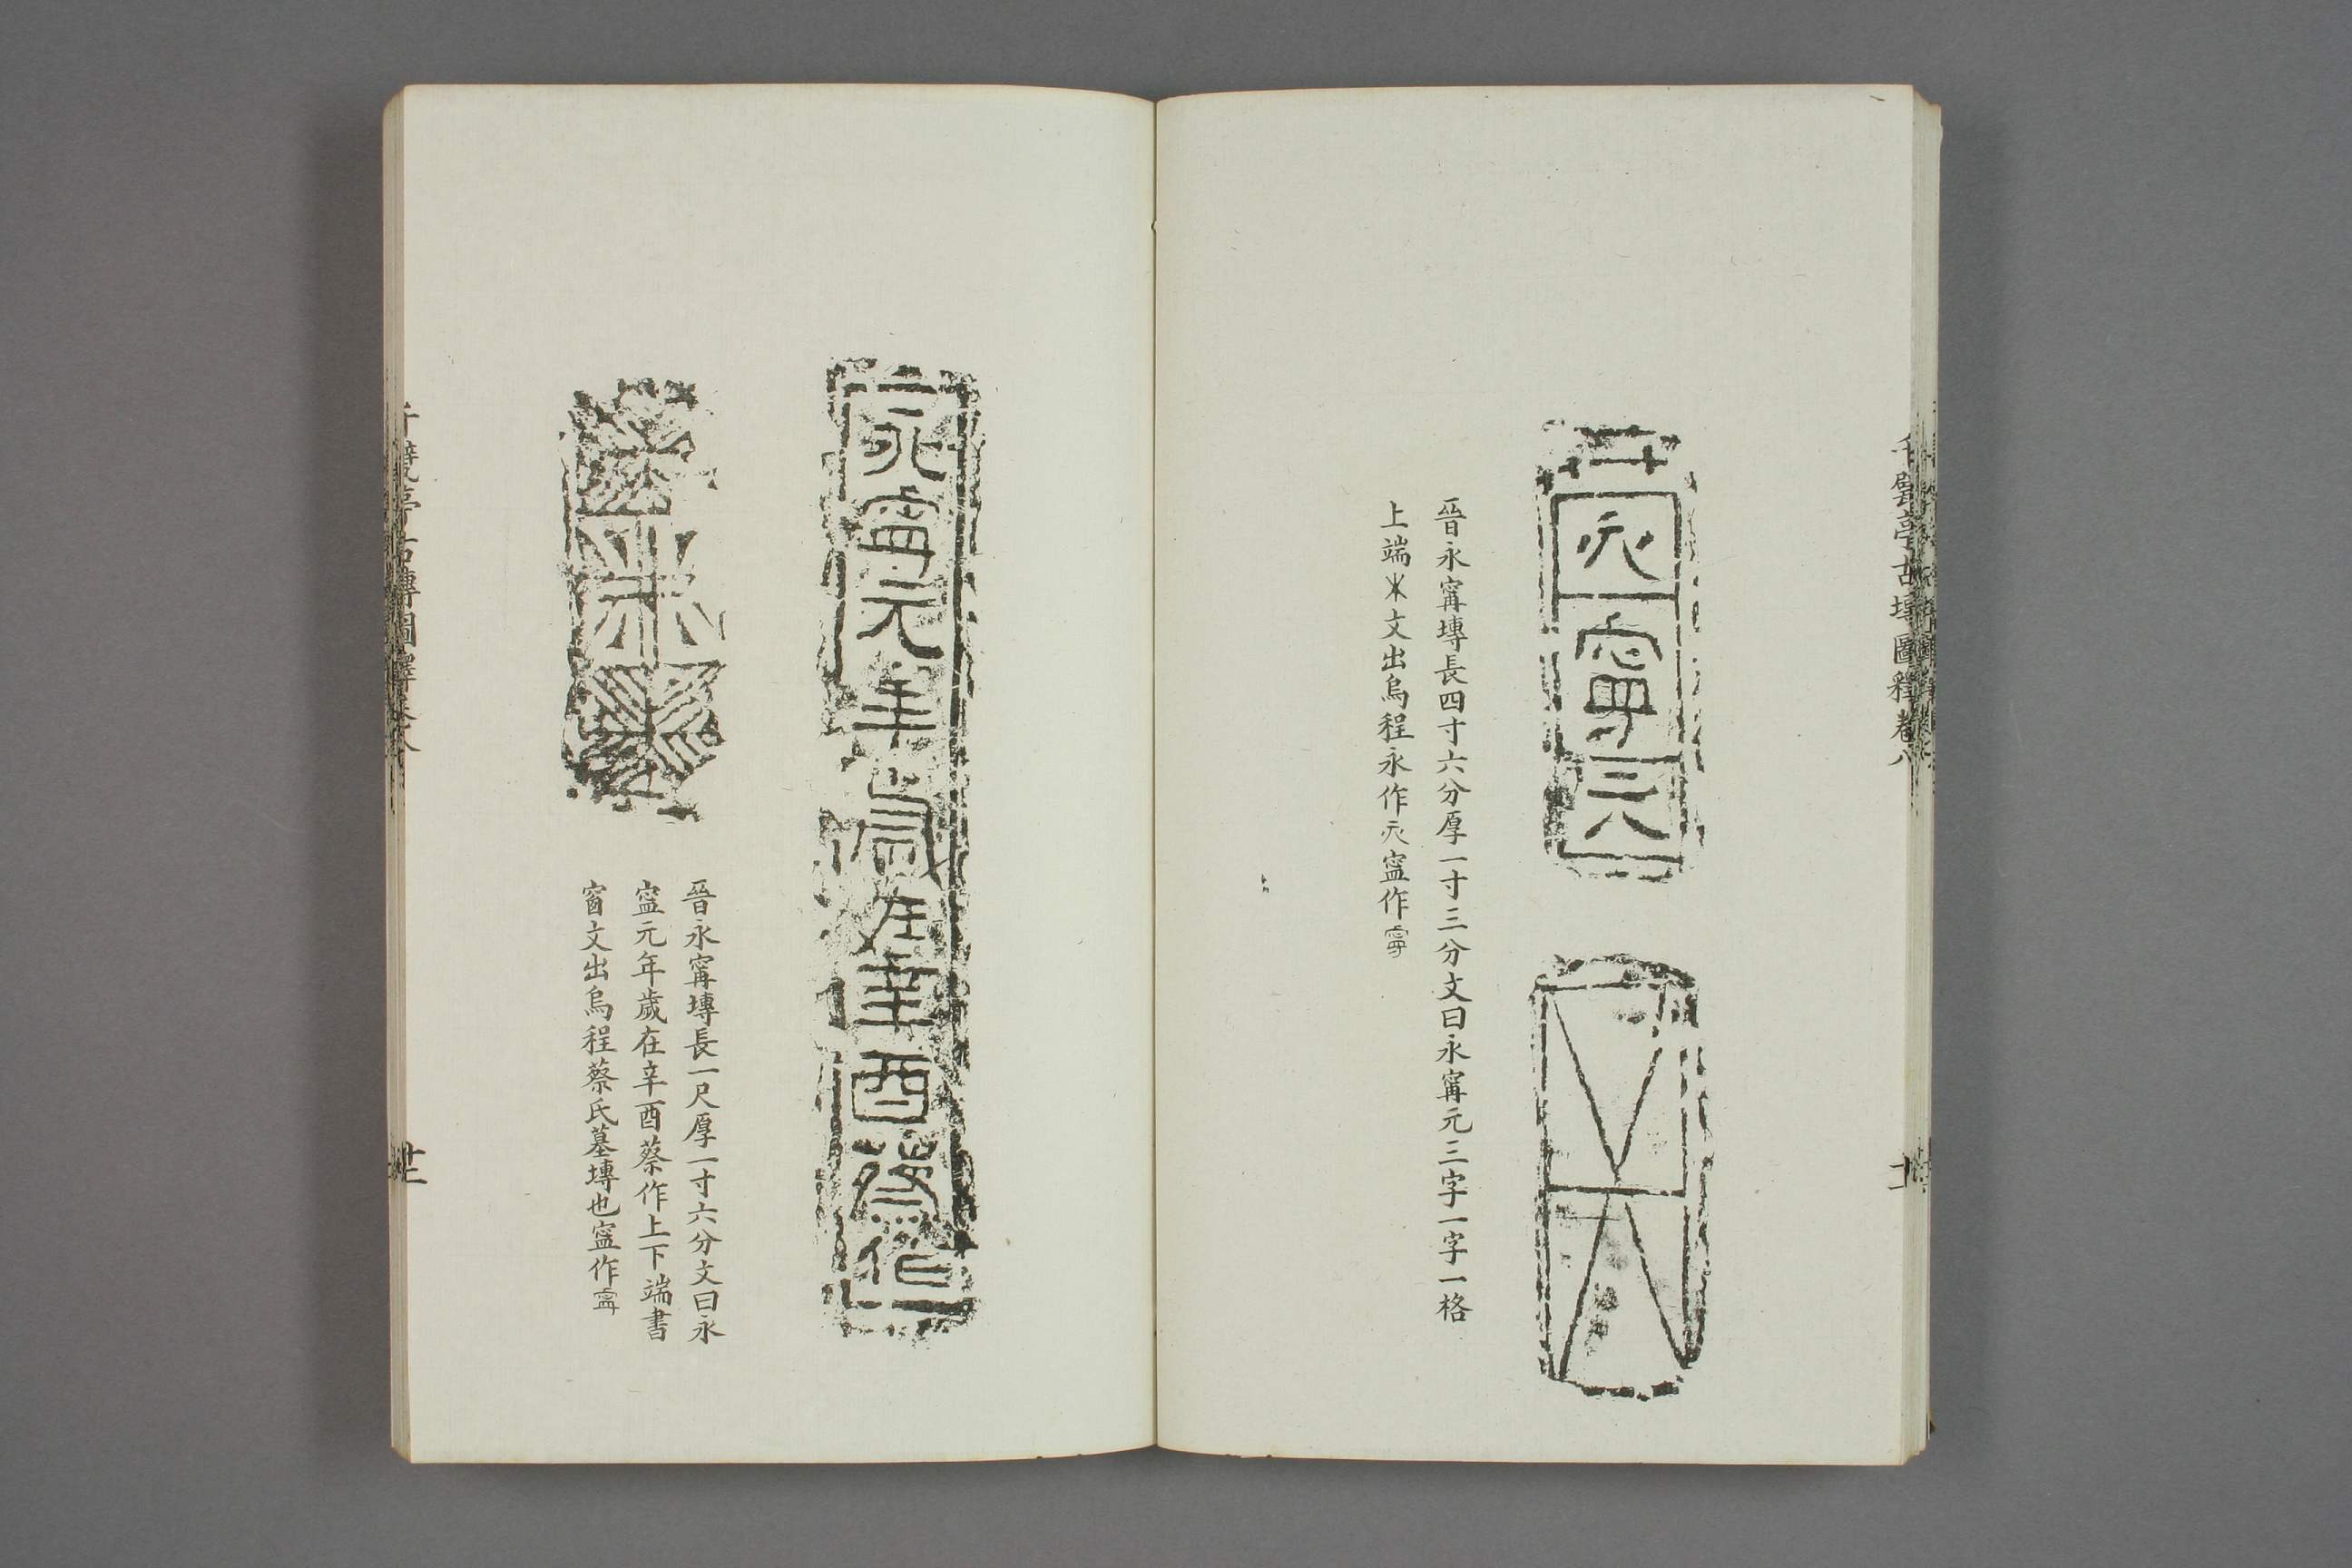 千甓亭古塼圖釋卷八
永寧元
晉永寗塼長四寸六分厚一寸三分文曰永寗元三字一字一格
上端木文出烏程永作永寍作寧
永寧元年歲在辛酉蔡作
晉永寗塼長一尺厚一寸六分文曰永
寍元年歲在辛酉蔡作上下端書
窗文出烏程蔡氏墓塼也寍作寧
千甓亭古塼圖釋卷八